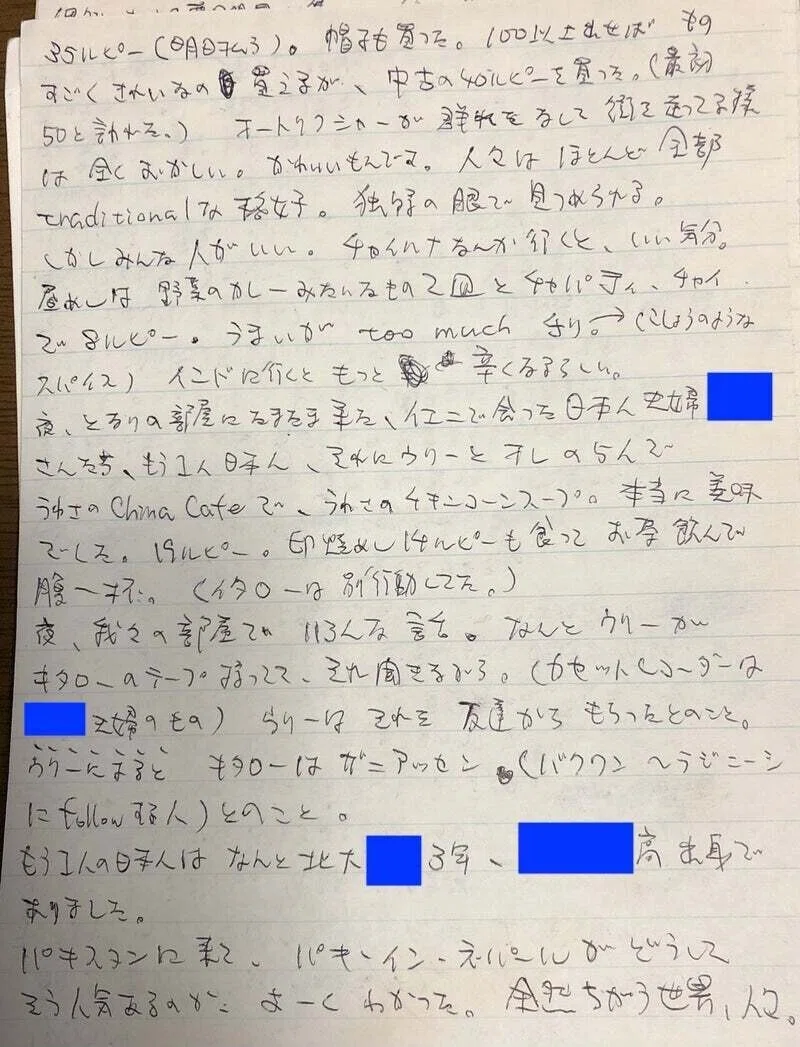 35ルピー(明日まで)。帽子も買った。100以上出せば もの
すごくきれいなの 買えるが、中古の40ルピーを買った。(最初
50と言われた。) オートリクシャーが 群れをなして 街を走ってる様
は 全くおかしい。かわいいもんです。人々は ほとんど 全部
traditionalな格好。独特の眼で 見つめられる。
しかしみんな人がいい。チャイハナなんか行くと、いい気分。
昼めしは 野菜のカレーみたいなもの2皿とチャパティ、チャイ
で 8ルピー。うまいが too much チリ。→(こしょうのような
スパイス) インドに行くと もっと 辛くなるらしい。
夜、となりの部屋にたまたま来た、イエニで会った日本人夫婦
さんたち、もう1人日本人、それにウリーとオレの5人で
うわさの China Cafe で、うわさのチキンコーンスープ。本当に美味
でした。19ルピー。卵焼めし14ルピーも食って お茶 飲んで
腹一杯。(イタローは別行動してた。)
夜、我々の部屋で いろんな話。なんとウリーが
キタローのテープ持ってて、それ聞きながら。(カセットレコーダーは
夫婦のもの) ウリーはそれを 友達から もらったとのこと。
ウリーによると キタローは サニアッセン (バグワン・ラジニーシ
に followする人) とのこと。
もう1人の日本人は なんと北大 3年、 高出身で
ありました。
パキスタンに来て、パキ・イン・ネパールが どうして
そう人気あるのか よーくわかった。全然ちがう世界、人々。